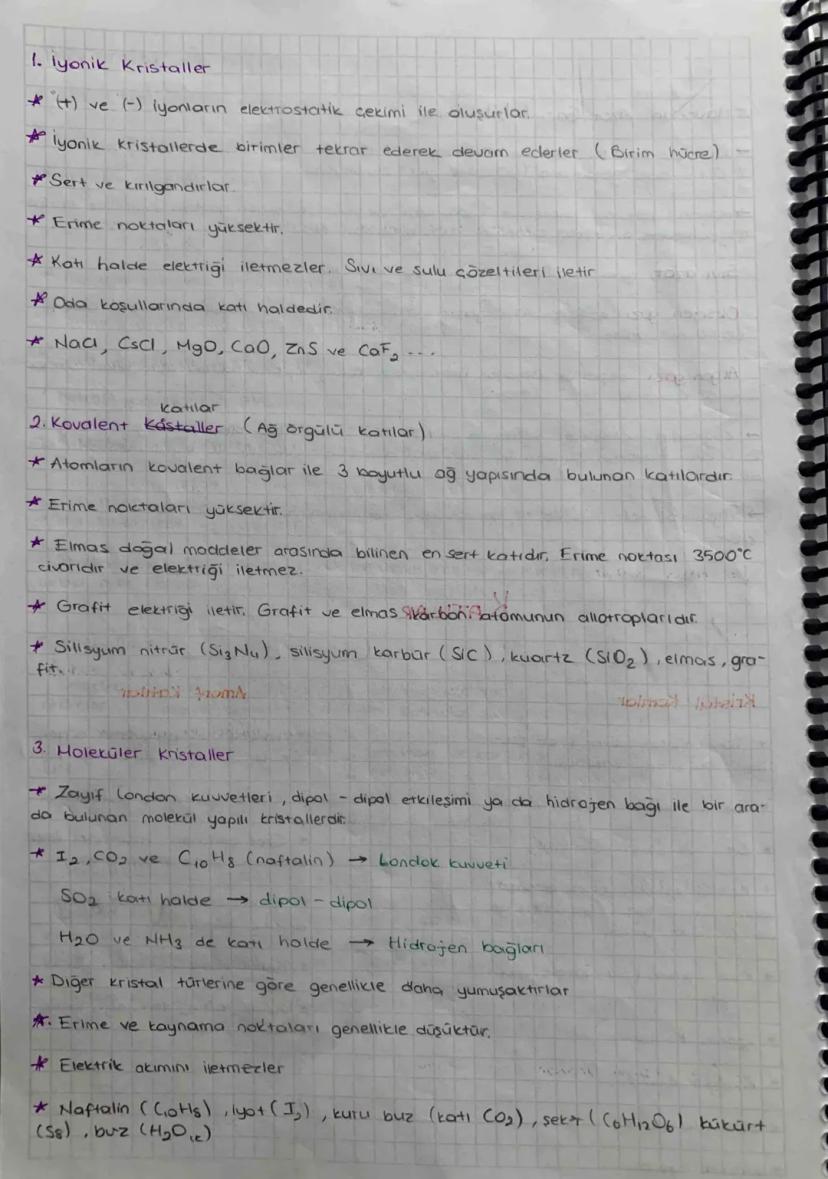 1. İyonik Kristaller
* (+) ve (-) iyonların elektrostatik çekimi ile oluşurlar.
* İyonik kristallerde birimler tekrar ederek devam ederler (Birim hücre)
* Sert ve kırılgandırlar.
* Erime noktaları yüksektir.
* Katı halde elektriği iletmezler. Sıvı ve sulu çözeltileri iletir
* Oda koşullarında katı haldedir.
* NaCl, CsCl, MgO, CaO, ZnS ve CaF₂ ...
katılar
2. Kovalent Kristaller (Ağ örgülü katılar)
* Atomların kovalent bağlar ile 3 boyutlu ağ yapısında bulunan katılardır.
* Erime noktaları yüksektir.
* Elmas doğal maddeler arasında bilinen en sert katıdır. Erime noktası 3500°C
civarıdır ve elektriği iletmez.
* Grafit elektriği iletir. Grafit ve elmas karbon atomunun allotroplarıdır.
* Silisyum nitrür (Si₃N₄), silisyum karbür (SiC), kuartz (SiO₂), elmas, gra-
fit.
3. Moleküler Kristaller
* Zayıf london kuvvetleri, dipol - dipol etkileşimi ya da hidrojen bağı ile bir ara-
da bulunan molekül yapılı kristallerdir.
* I₂, CO₂ ve C₁₀H₈ (naftalin) → Londok kuvveti
SO₂ katı halde → dipol - dipol
H₂O ve NH₃ de katı halde → Hidrojen bağları
* Diğer kristal türlerine göre genellikle daha yumuşaktırlar
* Erime ve kaynama noktaları genellikle düşüktür.
* Elektrik akımını iletmezler
* Naftalin (C₁₀H₈), iyot (I₂), kuru buz (katı CO₂), şeker (C₆H₁₂O₆) kükürt
(S₈), buz (H₂O(k))